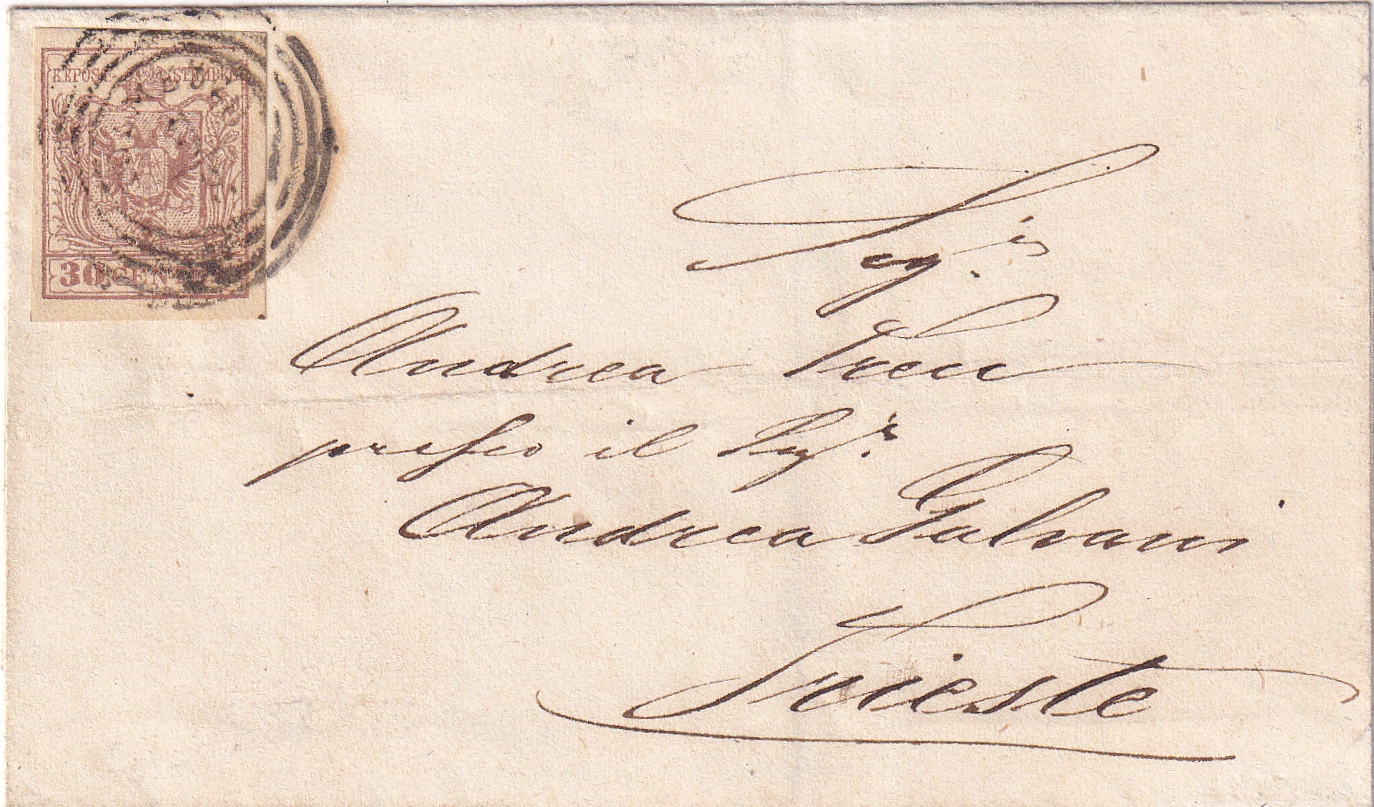 KKPOST-STEMPEL
30 CENTES
Sigr
Andrea
presso il Sigr
Andrea Galvani
Trieste